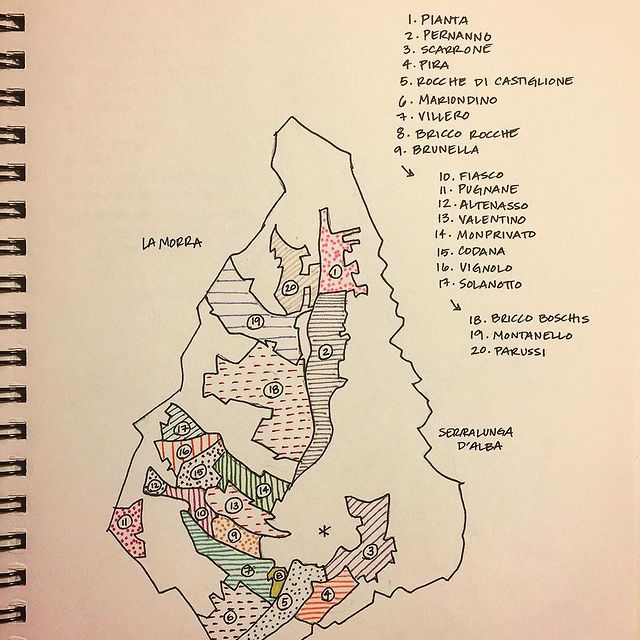 1. PIANTA
2. PERNANNO
3. SCARRONE
4. PIRA
5. ROCCHE DI CASTIGLIONE
6. MARIONDINO
7. VILLERO
8. BRICCO ROCCHE
9. BRUNELLA
10. FIASCO
11. PUGNANE
12. ALTENASSO
13. VALENTINO
14. MONPRIVATO
15. CODANA
16. VIGNOLO
17. SOLANOTTO
18. BRICCO BOSCHIS
19. MONTANELLO
20. PARUSSI
LA MORRA
SERRALUNGA
D'ALBA
1
20
19
2
18
17
16
15
12
14
10
13
11
9
3
7
8
5
4
6